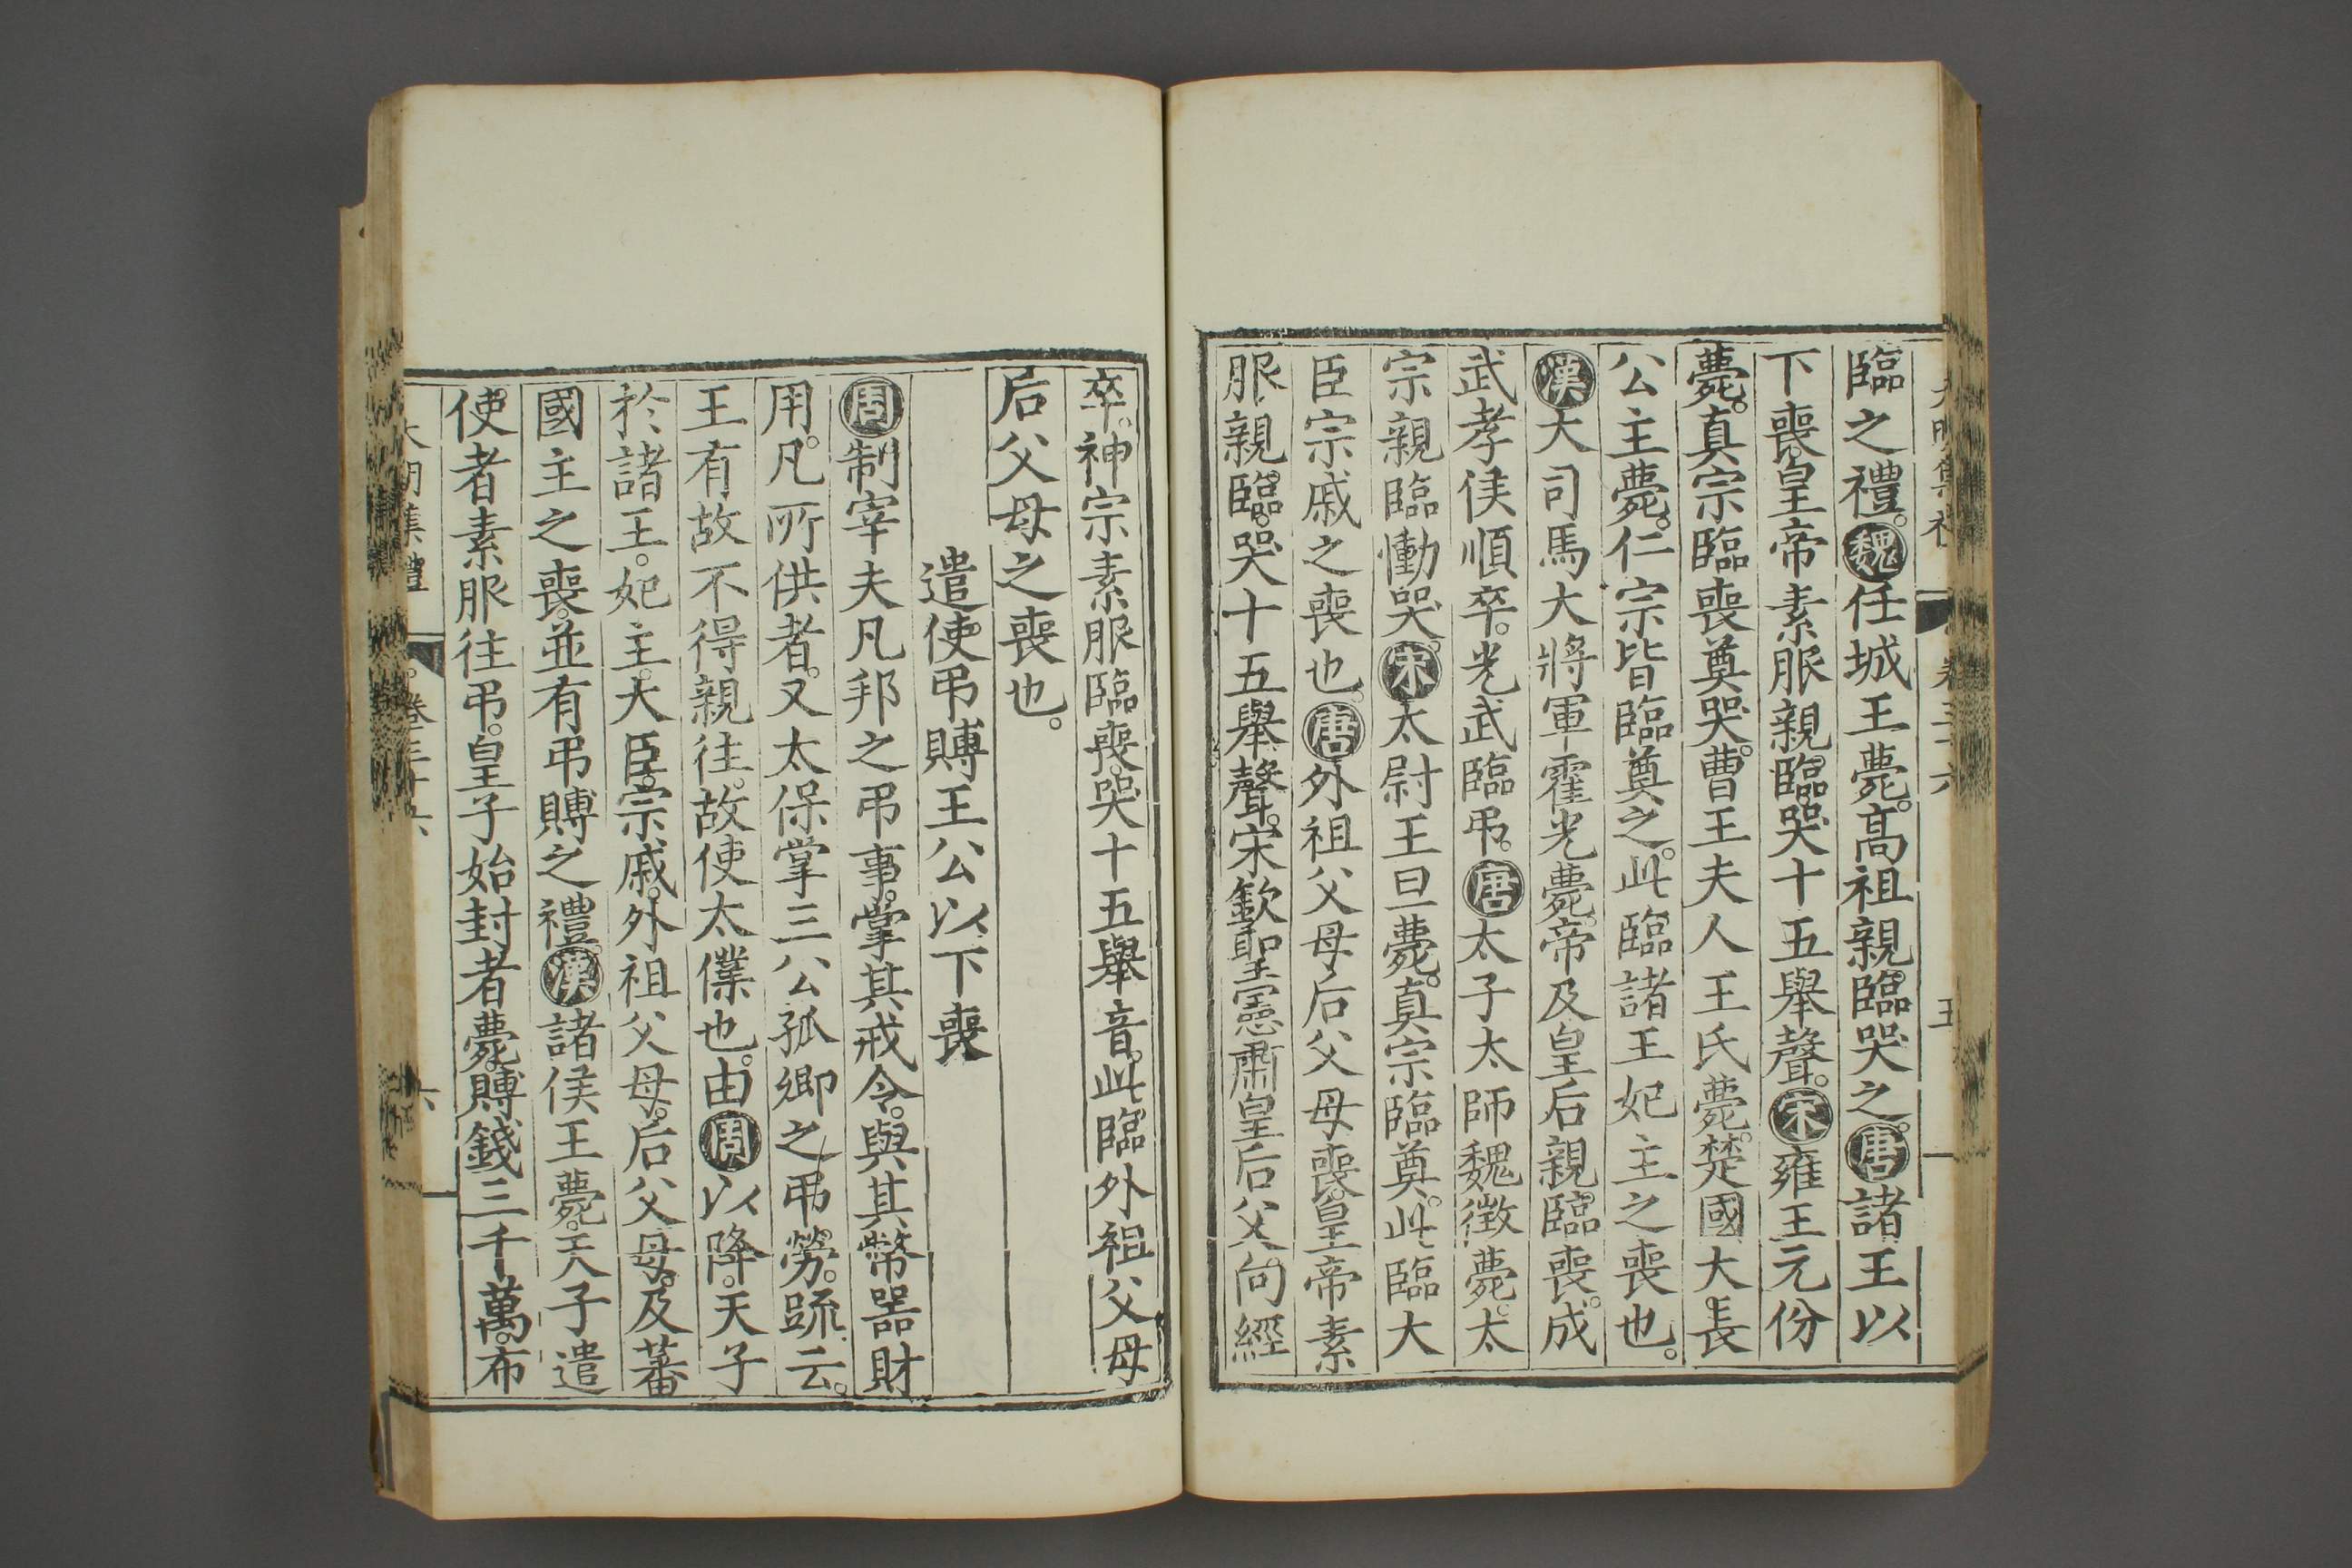 臨之禮。魏任城王薨。高祖親臨哭之。唐諸王以
下喪。皇帝素服親臨。哭十五舉聲。宋雍王元份
薨。真宗臨喪奠哭。曹王夫人王氏薨。楚國大長
公主薨。仁宗皆臨奠之。此臨諸王妃主之喪也。
漢大司馬大將軍霍光薨。帝及皇后親臨喪。成
武孝侯順卒。光武臨弔。唐太子太師魏徵薨。太
宗親臨慟哭。宋太尉王旦薨。真宗臨奠。此臨大
臣宗戚之喪也。唐外祖父母后父母喪。皇帝素
服親臨。哭十五舉聲。宋欽聖憲肅皇后父向經
卒。神宗素服臨喪。哭十五舉音。此臨外祖父母
后父母之喪也。
遣使弔賻王公以下喪
周制宰夫凡邦之弔事。掌其戒令。與其幣器財
用。凡所供者。又太保掌三公孤卿之弔。勞。䟽云。
王有故不得親往。故使太僕也。由周以降。天子
於諸王。妃主。大臣。宗戚。外祖父母。后父母。及蕃
國主之喪。並有弔賻之禮。漢諸侯王薨。天子遣
使者素服往弔。皇子始封者薨。賻錢三千萬。布
大明集禮 卷三十六 六